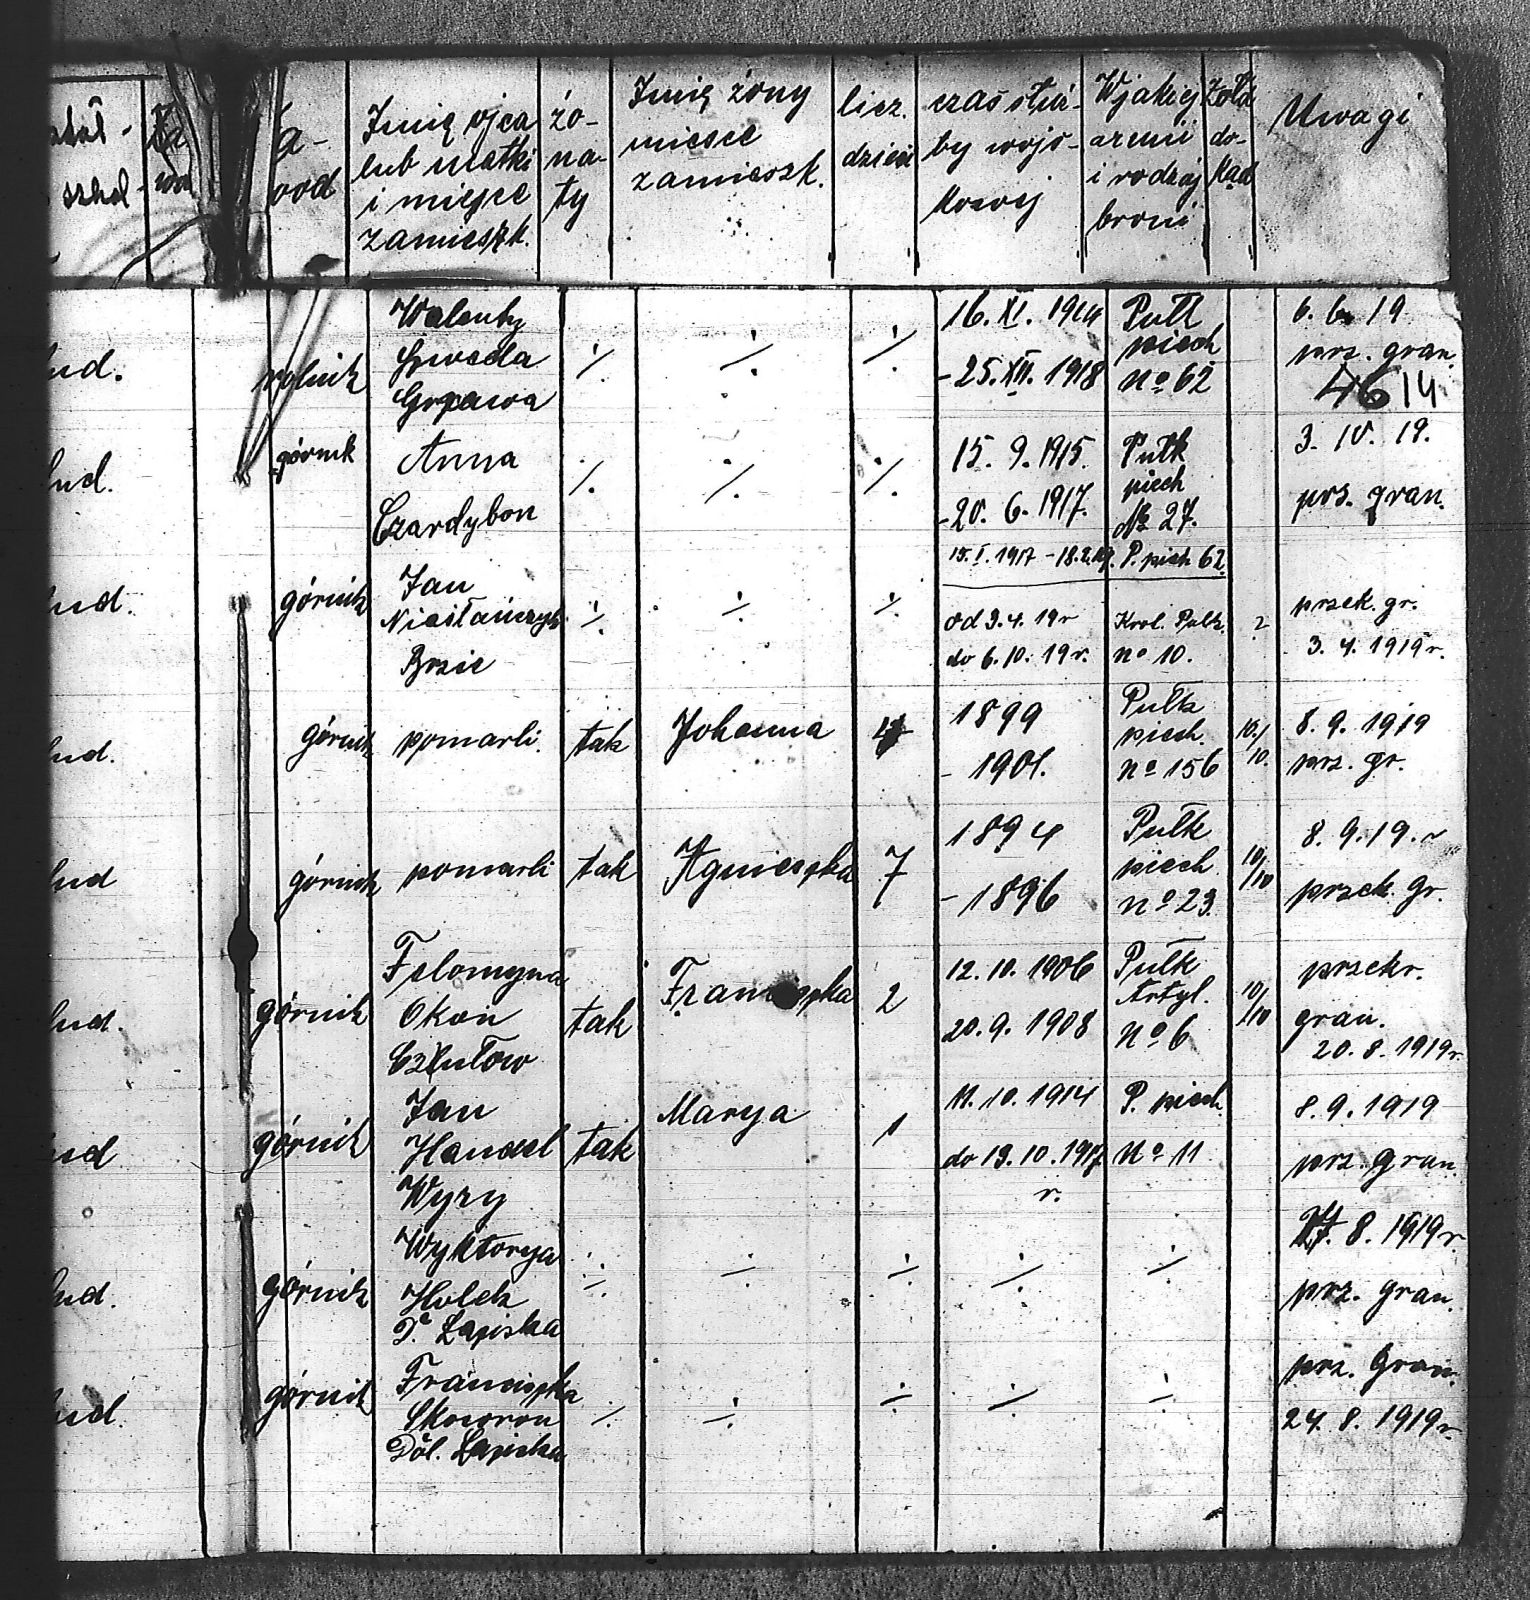 szkol-
a-
wod
Imię ojca
lub matki
i miejsce
zamieszk.
żo-
na-
ty
Imię żony
miesce
zamieszk.
licz.
dzieci
czas służ-
by wojs-
kowej
W jakiej
armii
i rodzaj
broni
Żołd
do-
kąd
Uwagi
lud.
rolnik
Walenty
Gwosda
Grzawa
⁒
⁒
⁒
16. XI. 1914
- 25. XII. 1918
Pułk
piech
No 62
6. 6. 19
prz. gran
4614
lud.
górnik
Anna
Czardybon
⁒
⁒
⁒
15. 9. 1915.
- 20. 6. 1917.
Pułk
piech
No 27.
3. 10. 19.
prz. gran.
P. piech 62.
lud.
górnik
Jan
Brzie
⁒
⁒
⁒
od 3. 4. 19 r
do 6. 10. 19 r.
Krol. Pułk.
No 10.
?
przek. gr.
3. 4. 1919 r.
lud.
górnik
pomarli.
tak
Johanna
4
1899
- 1901.
Pułk
piech.
No 156
10/
10.
8. 9. 1919
prz. gr.
lud
górnik
pomarli
tak
Agnieszka
7
1894
- 1896
Pułk
piech
No 23.
10/
/10
8. 9. 19. r
przek. gr.
lud.
górnik
Felomyna
Okoń
tak
Franciszka
2
12. 10. 1906
20. 9. 1908
Pułk
Artyl.
No 6
10/
/10
przekr.
gran.
20. 8. 1919 r.
lud
górnik
Jan
Handel
Wyry
tak
Marya
1
11. 10. 1914
do 19. 10. 1917
r.
P. piech.
No 11
8. 9. 1919
prz. gran.
lud.
górnik
Wyktorya
Holek
D. Łaziska
÷
÷
÷
÷
÷
27. 8. 1919 r.
prz. gran.
lud.
górnik
Franciszka
Skowron
Dol. Łaziska
⁒
÷
÷
÷
÷
prz. Gran.
24. 8. 1919 r.